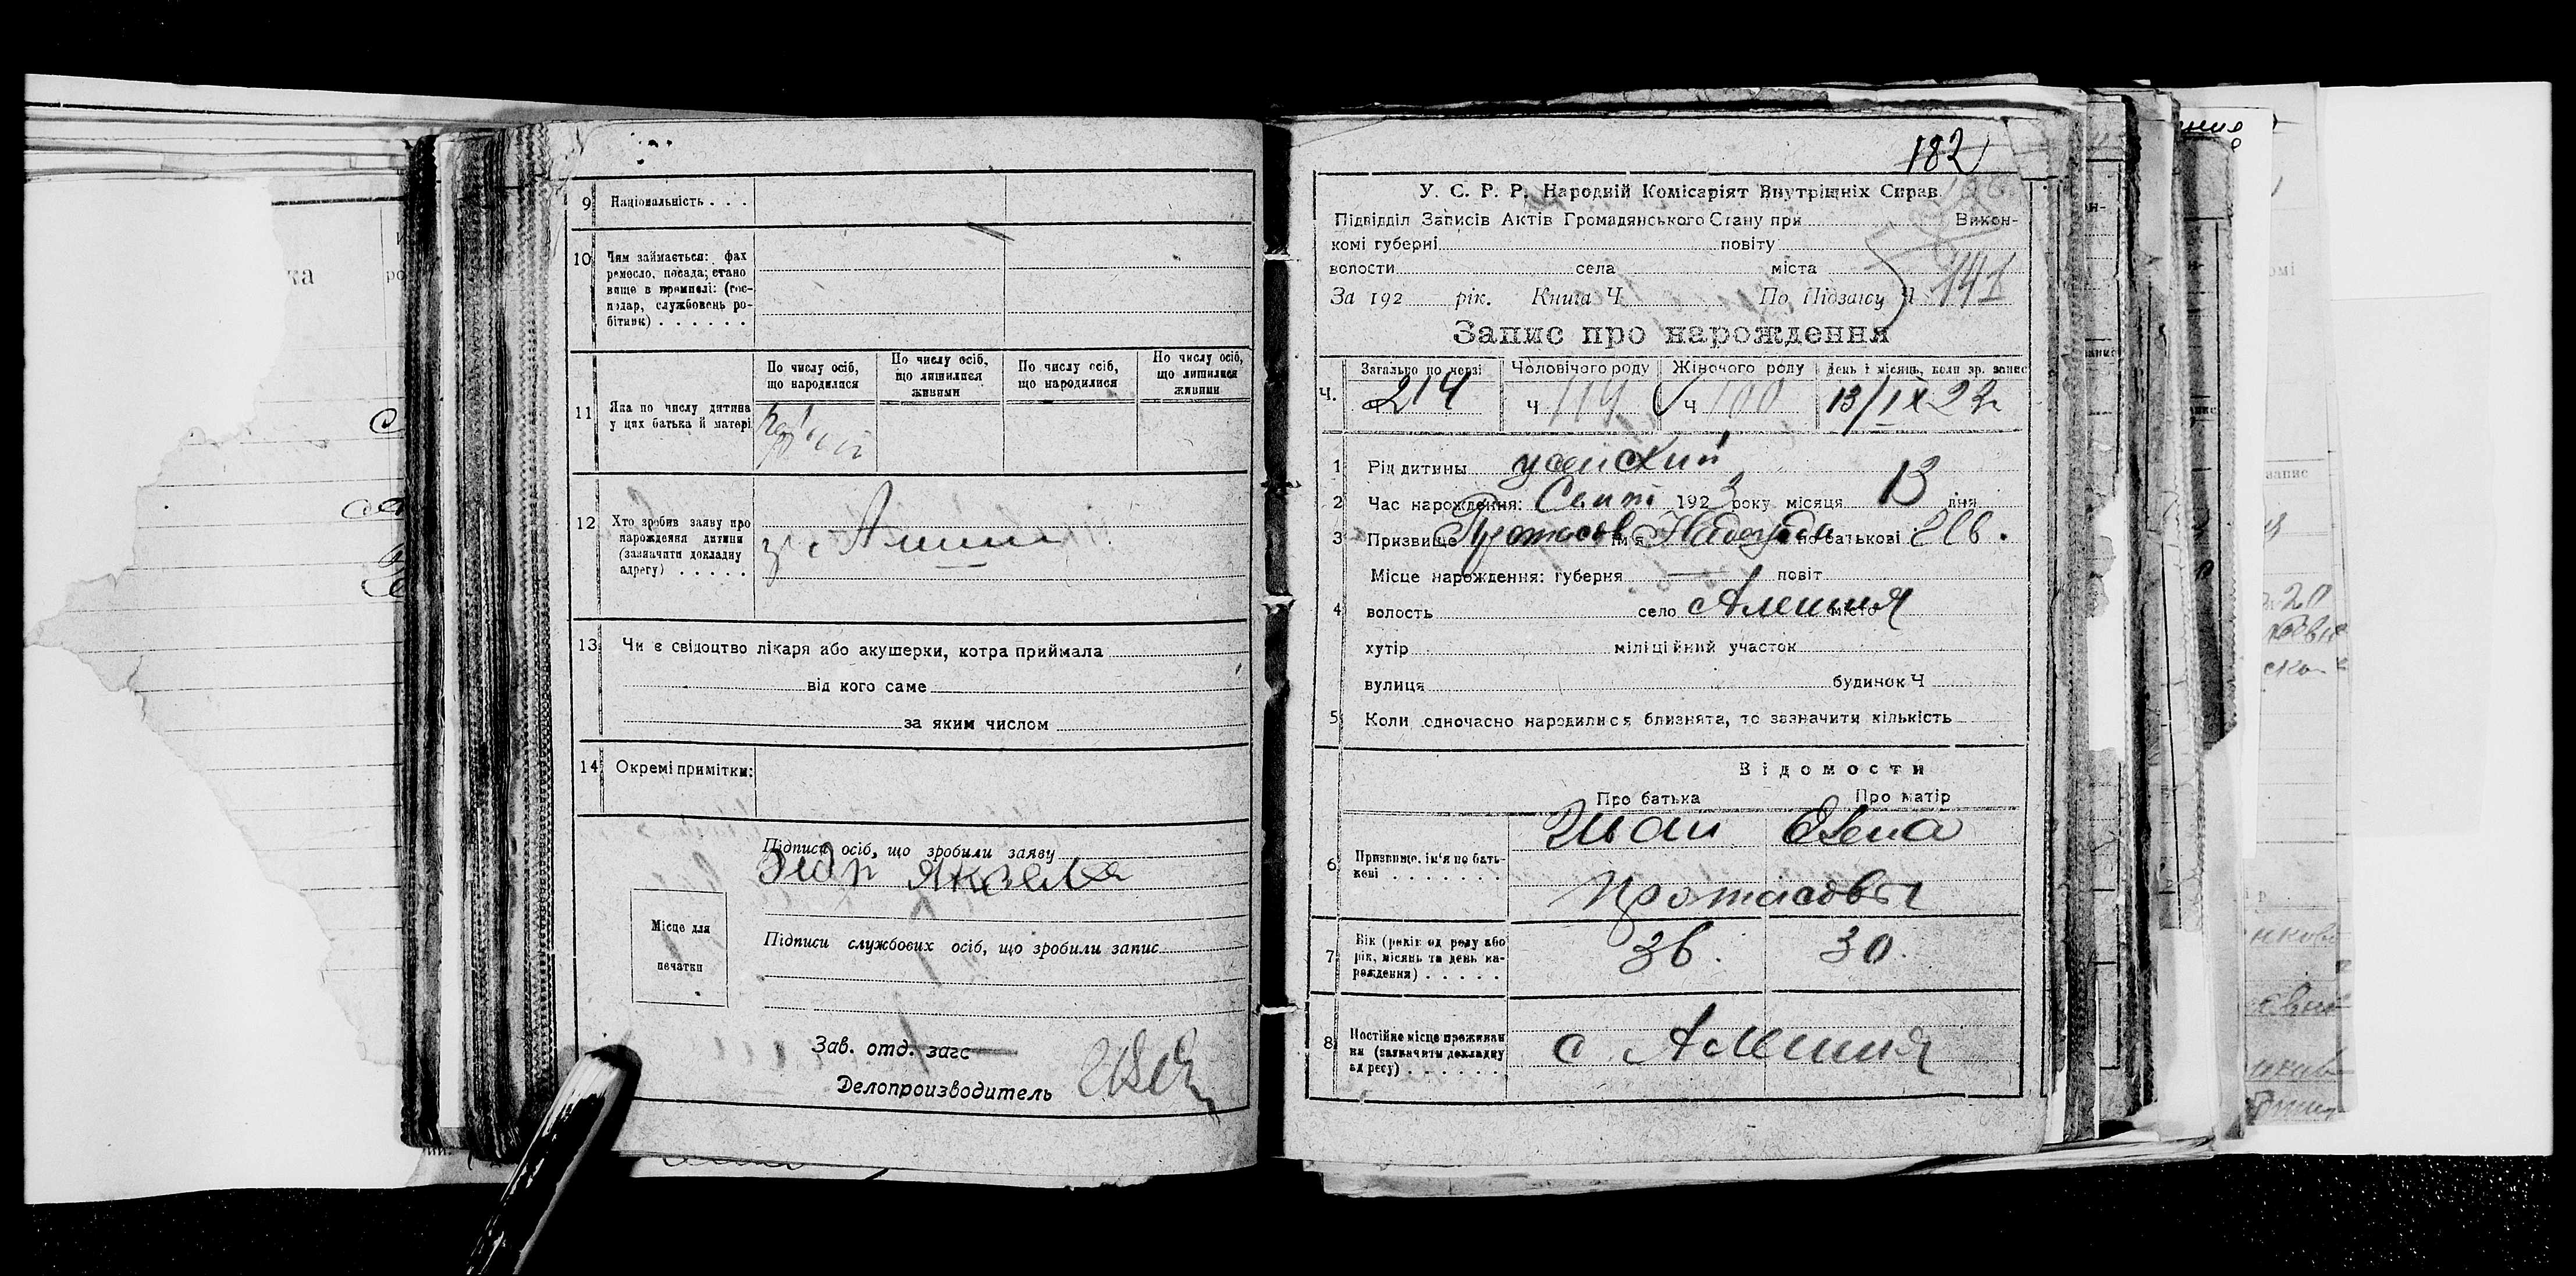 9 Національність . . .
10 Чим займається: фах
ремесло, посада; стано
вище в промислі: (гос-
подар, службовець ро-
бітник) . . . . . .
11 Яка по числу дитина
у цих батька й матері
По числу осіб,
що народилися
По числу осіб,
що лишилися
живими
По числу осіб,
що народилися
По числу осіб,
що лишилися
живими
12 Хто зробив заяву про
нарождення дитини
(зазначити докладну
адресу) . . . . .
13 Чи є свідоцтво лікаря або акушерки, котра приймала
від кого саме
за яким числом
14 Окремі примітки:
Підписи осіб, що зробили заяву
Місце для
печатки
Підписи службових осіб, що зробили запис
Зав. отд. загс
Делопроизводитель
182
У. С. Р. Р. Народній Комісаріят Внутрішніх Справ
Підвідділ Записів Актів Громадянського Стану при Викон-
комі губерні повіту
волости села міста
За 192 рік. Книга Ч По Підзагсу Ч 141
Запис про нарождення
Ч. Загально по черзі Чоловічого роду Жіночого роду День і місяць, коли зр. запис
214 Ч 114 Ч 100 13/IX 23
1 Рід дитины женский
2 Час нарождення: Сент. 1923 року місяця 13 дня
3 Призвище Протасов ім'я Надежда по батькові Ив.
4 Місце нарождення: губерня повіт
волость село Алешня місто
хутір міліційний участок
вулиця будинок Ч
5 Коли одночасно народилися близнята, то зазначити кількість
Відомости
Про батька Про матір
6 Призвище, ім'я по бать-
кові . . . . . . .
Иван Елена
Протасовы
7 Вік (років од роду або
рік, місяць та день на-
рождення) . . . . .
36. 30.
8 Постійне місце проживан
ня (зазначити докладну
адресу) . . . . . .
с Алешня